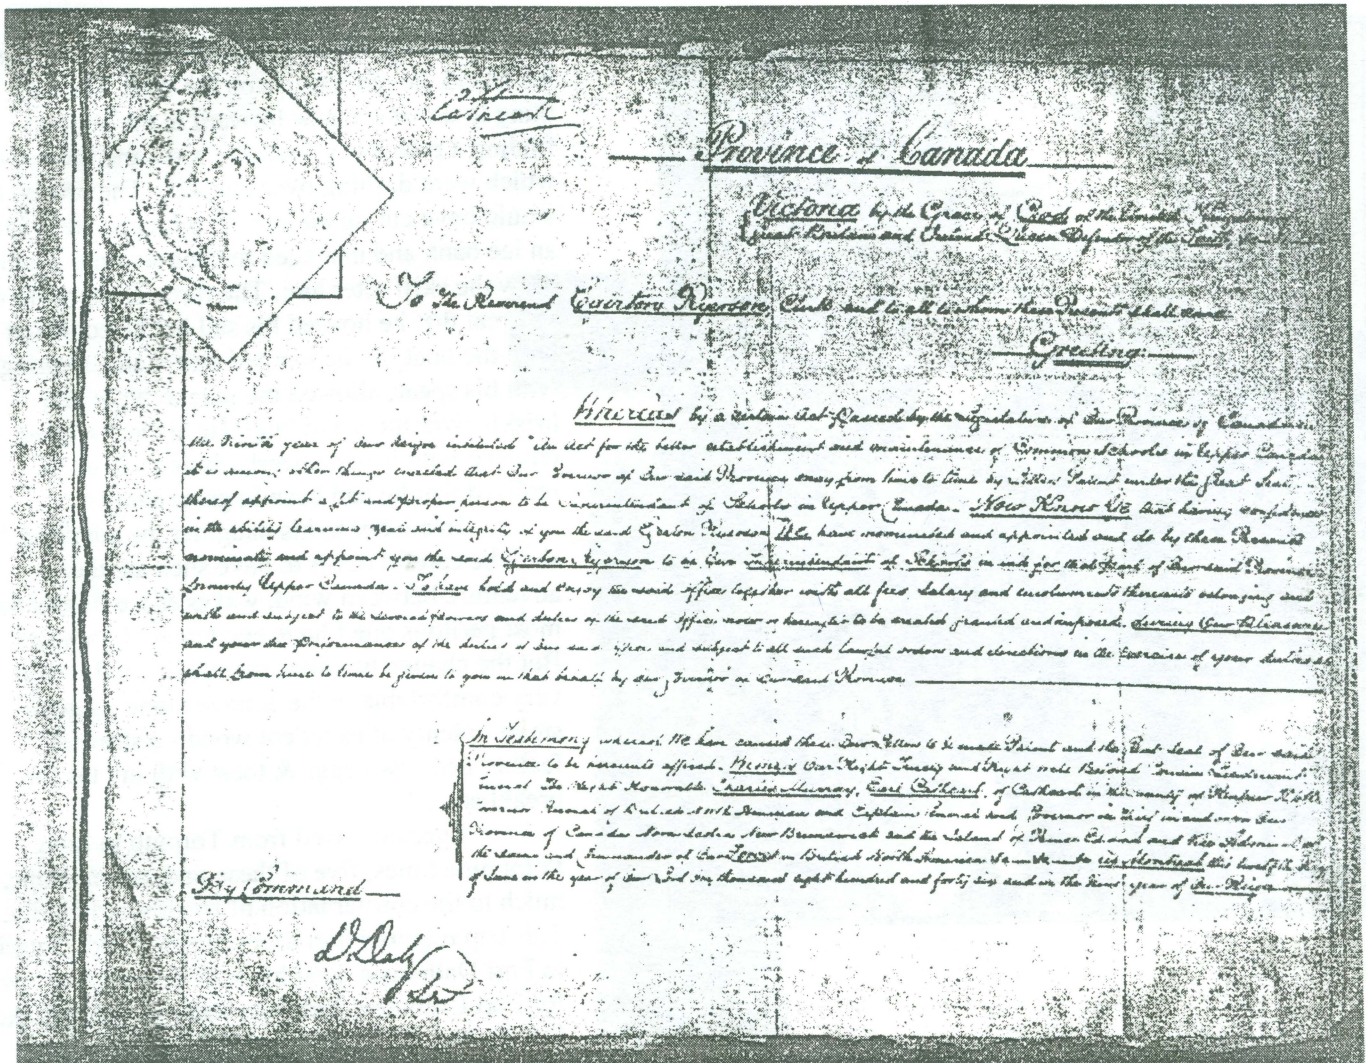 Cathcart
Province of Canada
Victoria by the Grace of God of the United Kingdom of
Great Britain and Ireland Queen Defender of the Faith
To The Reverend Egerton Ryerson Clerk and to all to whom these Presents shall come
Greeting
Whereas by a certain Act Passed by the Legislature of Our Province of Canada in
the Ninth year of Our Reign intituled "An Act for the better establishment and maintenance of Common Schools in Upper Canada
it is among other things enacted that Our Governor of Our said Province may from time to time by Letters Patent under the Great Seal
thereof appoint a fit and proper person to be Superintendent of Schools in Upper Canada. Now Know Ye that having confidence
in the ability learning zeal and integrity of you the said Egerton Ryerson We have nominated and appointed and do by these Presents
nominate and appoint you the said Egerton Ryerson to be Our Superintendent of Schools in and for that Part of Our said Province
formerly Upper Canada. To have hold and enjoy the said office together with all fees, salary and emoluments thereunto belonging and
with and subject to the several powers and duties of the said office now or hereafter to be created granted and imposed. During Our Pleasure
and your due Performance of the duties of Our said office and subject to all such lawful orders and directions in the Exercise of your duties as
shall from time to time be given to you in that behalf by our Governor of Our said Province
In Testimony whereof We have caused these Our Letters to be made Patent and the Great Seal of Our said
Province to be hereunto affixed. Witness Our Right Trusty and Right well Beloved Cousin Lieutenant
General The Right Honorable Charles Murray, Earl Cathcart, of Cathcart in the county of Renfrew K.C.B.
Governor General of British North America and Captain General and Governor in Chief in and over Our
Province of Canada Nova Scotia New Brunswick and the Island of Prince Edward and Vice Admiral of
the same and Commander of Our Forces in British North America at Montreal this day
of June in the year of Our Lord One thousand eight hundred and forty six and in the Ninth year of Our Reign
By Command
D Daly
Sec